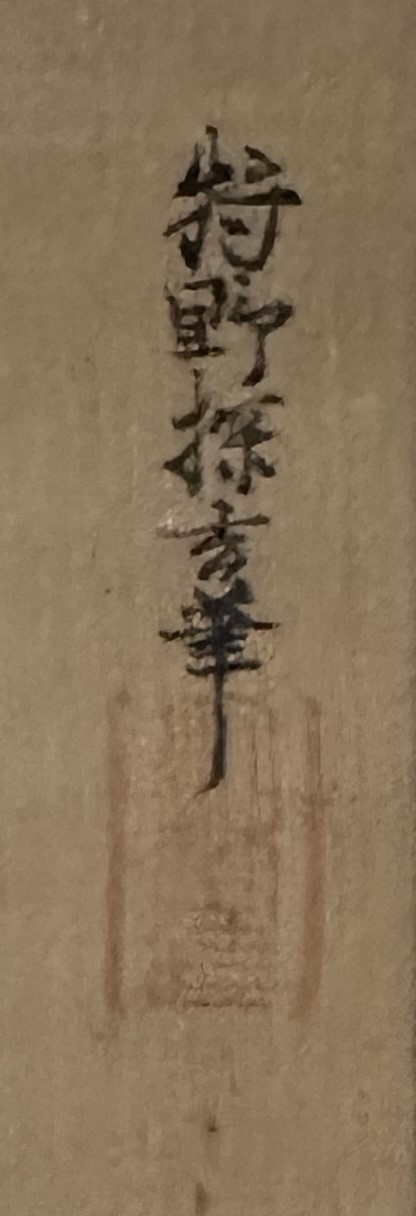 狩野探玄筆